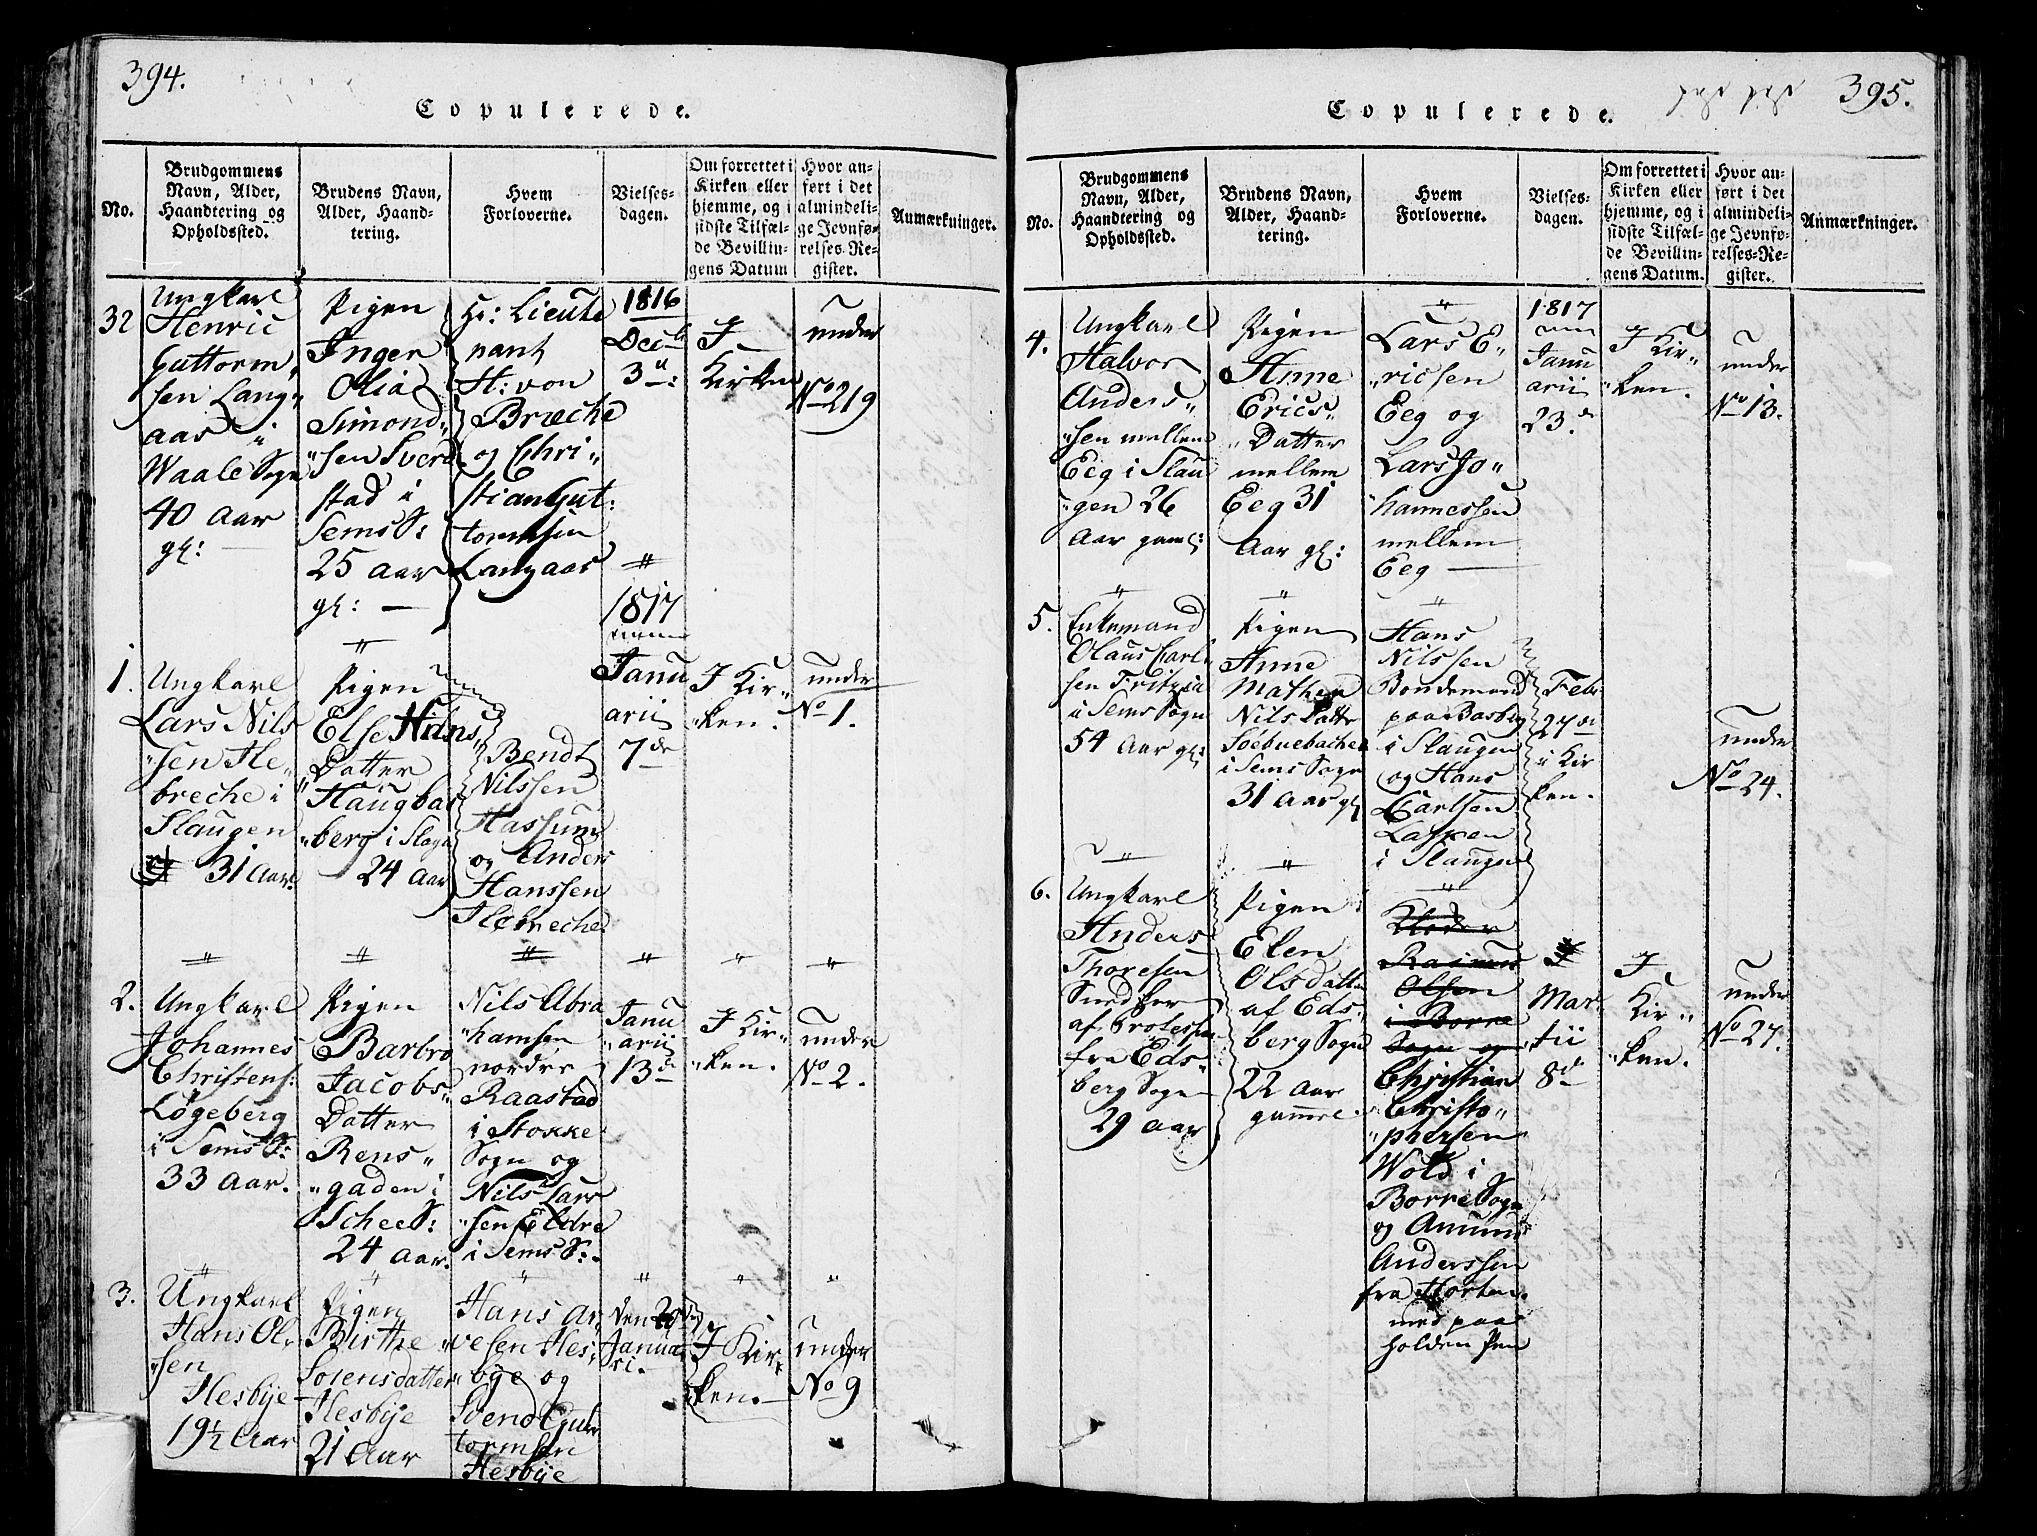 394.
Copulerede.
No.
Brudgommens
Navn, Alder,
Haandtering og
Opholdssted.
Brudens Navn,
Alder, Haand-
tering.
Hvem
Forloverne.
Vielses-
dagen.
Om forrettet i
Kirken eller
hjemme, og i
sidste Tilfæl-
de Bevillin-
gens Datum
Hvor an-
ført i det
almindeli-
ge Jevnfø-
relses-Re-
gister.
Anmærkninger.
32
Ungkarl
Henric
Guttorm„
sen Lang„
aas i
Waale Sogn
40 Aar
gl:
Pigen
Inger
Olia
Simond„
„sen Sverd
stad i
Sems S:
25 Aar
gl: —
Hr: Lieute
nant
H: von
Bræche
og Chri„
stian Gut:
tormsen
Langaas
1816
Decb
3
I
Kirken
under
No 219
1.
Ungkarl
Lars Nils
„sen Fle„
breche i
Slaugen
31 Aar.
Pigen
Else Hans
„Datter
Haugbas
„berg i Slag
24 Aar
Bendt
Nilssen
Hassum
og Anders
Hanssen
Flebreche
1817
Janu
arii
7de
I Kir„
„ken.
under
No 1.
2.
Ungkarl
Johannes
Christens:
Løgeberg
i Sems S:
33 Aar.
Pigen
Barbro
Jacobs„
Datter
Rens„
„gaden i
Schee S:
24 Aar.
Nils Abra
„hamsen
nordre
Raastad
i Stokke
Sogn og
Nils Lars
„sen Eldre
i Sems S:
Janu
„arii
13d
I Kir„
„ken.
under
No 2.
3.
Ungkarl
Hans Ol„
„sen
Hesbye
19½ Aar
Pigen
Birthe
Sorensdatter
Hesbye
21 Aar
Hans Ar„
„vesen Hes„
„bye og
Svend Gut
tormsen
Hesbye
den 20
Janua
ri.
I Kir
ken.
under
No 9
395.
Copulerede.
No.
Brudgommens
Navn, Alder,
Haandtering og
Opholdssted.
Brudens Navn,
Alder, Haand-
tering.
Hvem
Forloverne.
Vielses-
dagen.
Om forrettet i
Kirken eller
hjemme, og i
sidste Tilfæl-
de Bevillin-
gens Datum.
Hvor an-
ført i det
almindeli-
ge Jevnfø-
relses-Re-
gister.
Anmærkninger.
4.
Ungkarl
Halvor
Anders„
„sen mellem
Eeg i Slau
„gen 26
Aar gaml:
Pigen
Anne
Erics„
„Datter
mellem
Eeg 31
Aar gl:
Lars E„
„ricsen
Eeg og
Lars Jo„
„hannessen
mellem
Eeg —
1817
Janu
arii
23.
I Kir„
„ken.
under
No 13.
5.
Enkemand
Olaus Carl
sen
i Sems Sogn
54 Aar gl:
Pigen
Anne
Mathea
Nils Datter
i Sems Sogn
31 Aar gl
Hans
Nilssen
Bondemand
paa Basberg
i Slaugen
og Hans
Carlsen
Lasken
i Slaugen
Febr
27de
i Kir
ken.
under
No 24.
6.
Ungkarl
Anders
Thoresen
Smed
af
fra Eds„
berg Sogn
29 Aar
Pigen
Elen
Olsdatter
af Eds„
berg Sogn
22 Aar
gammel.
Rasmus
Olsen
i Borre
Sogn og
Christian
„Christo„
„phersen
Wold i
Borre Sogn
og Amund
Anderssen
fra Horten.
med paa
holden Pen
Mar„
„tii
8d
I
Kir„
„ken.
under
No 27.